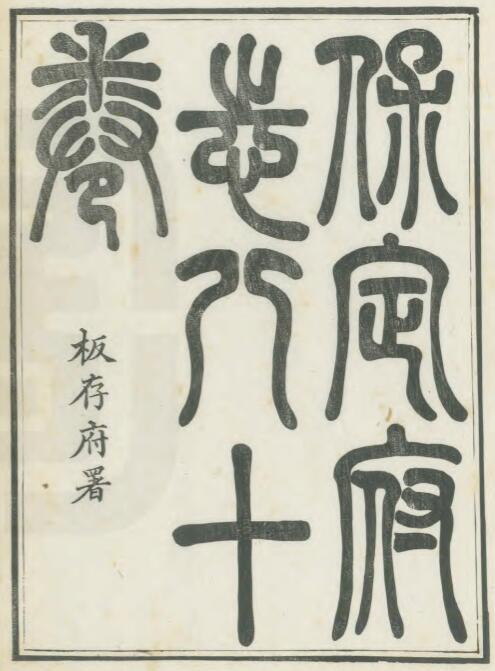 保定府
志八十
卷
板存府署